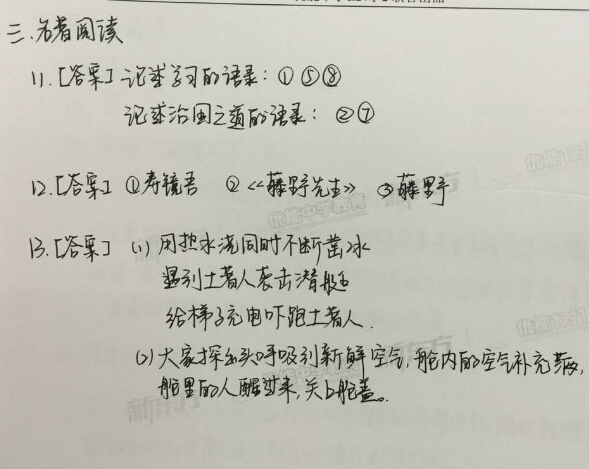 三、名著阅读
11.[答案]记述学习的语录：①⑤⑧
记述治国之道的语录：②⑦
12.[答案] ①寿镜吾 ②《藤野先生》 ③藤野
13.[答案] (1) 用热水浇同时不断凿冰
遇到土著人袭击潜艇
给梯子充电吓跑土著人.
(2)大家探出头呼吸到新鲜空气,舱内的空气补充満,
舱里的人醒过来,关上舱盖。
优能中学教育
新东方